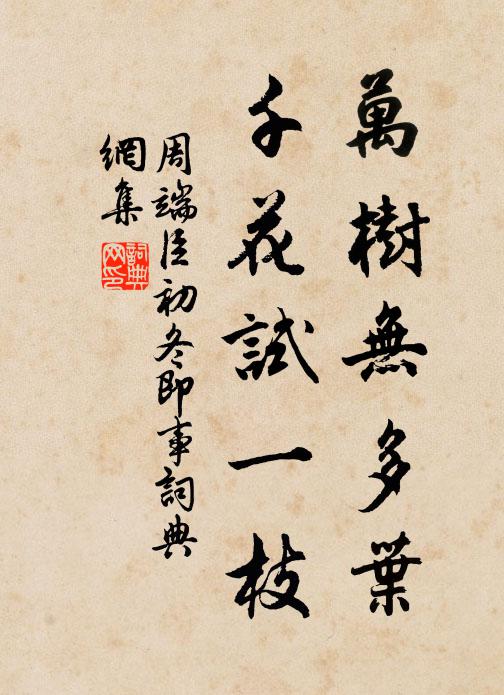 萬樹無多葉
千花試一枝
周端臣初冬即事詞典
網集
詞典網印